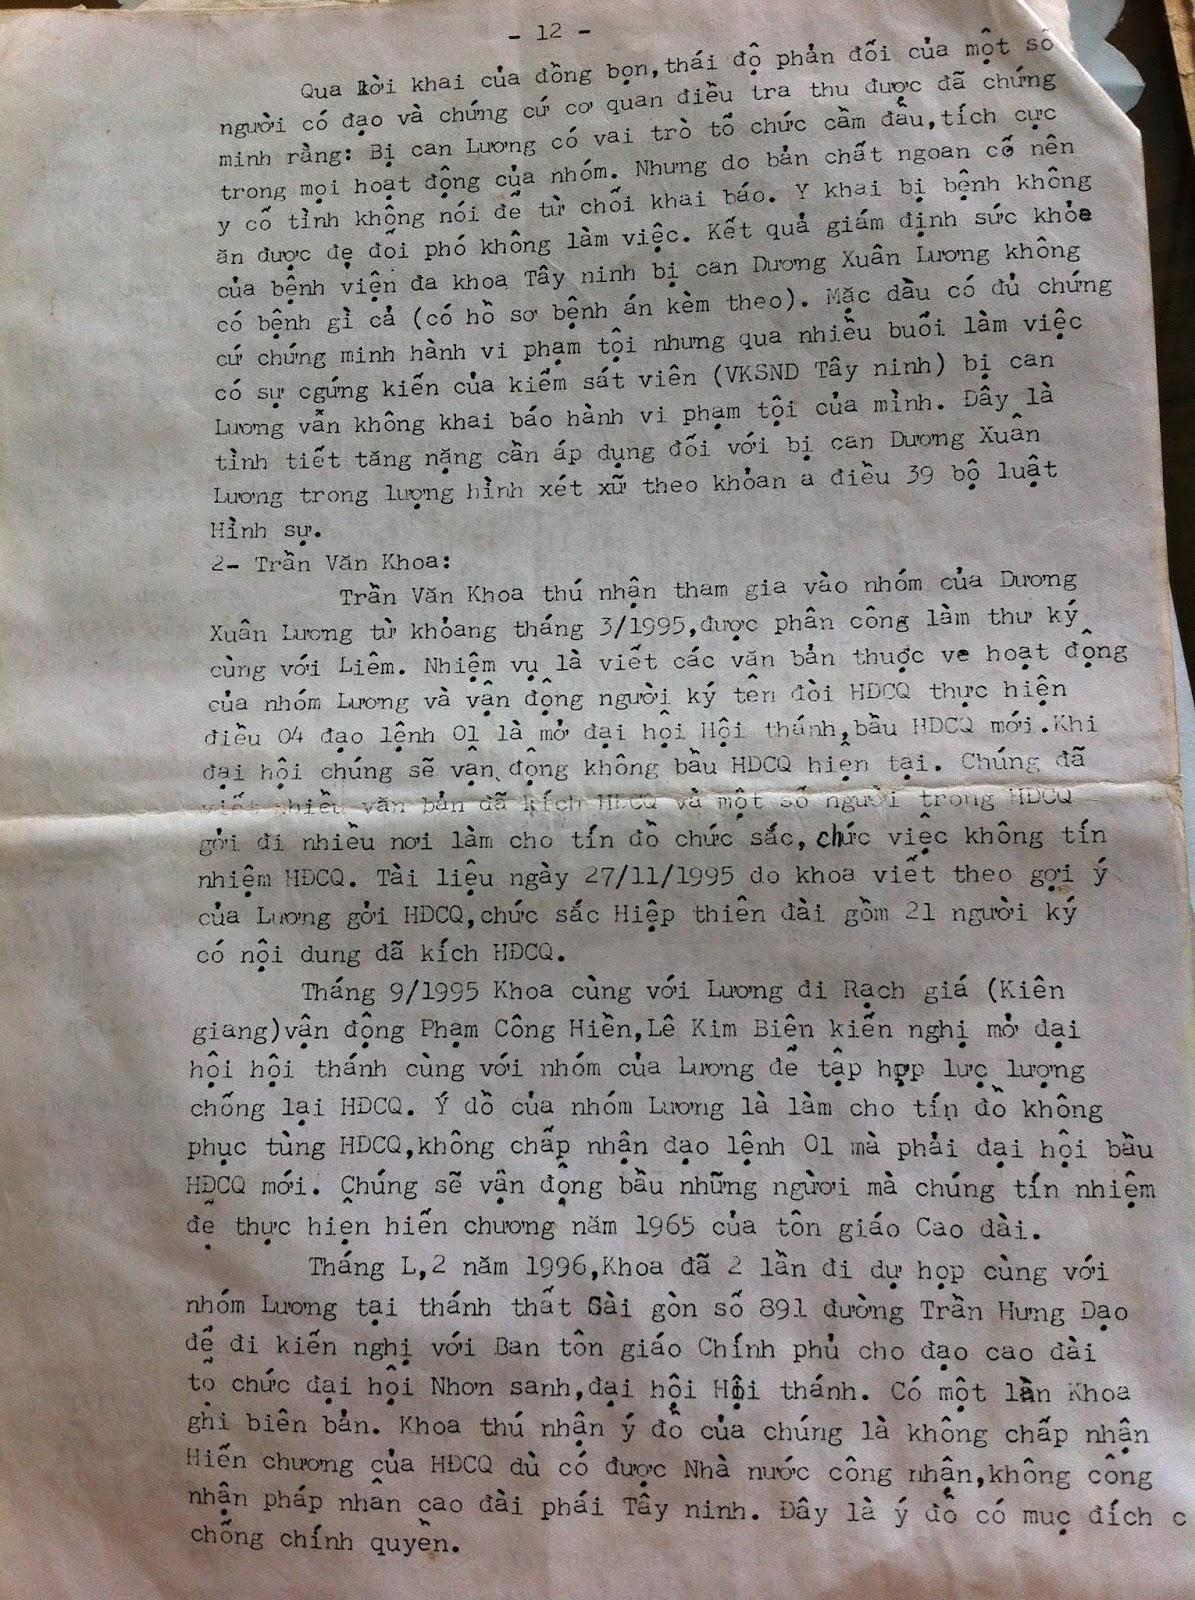 - 12 -
Qua lời khai của đồng bọn,thái độ phản đối của một số
người có đạo và chứng cứ cơ quan điều tra thu được đã chứng
minh rằng: Bị can Lương có vai trò tổ chức cầm đầu,tích cực
trong mọi hoạt động của nhóm. Nhưng do bản chất ngoan cố nên
y cố tình không nói để từ chối khai báo. Y khai bị bệnh không
ăn được đẹ đối phó không làm việc. Kết quả giám định sức khỏe
của bệnh viện đa khoa Tây ninh bị can Dương Xuân Lương không
có bệnh gì cả (có hồ sơ bệnh án kèm theo). Mặc dầu có đủ chứng
cứ chứng minh hành vi phạm tội nhưng qua nhiều buổi làm việc
có sự cgứng kiến của kiểm sát viên (VKSND Tây ninh) bị can
Lương vẫn không khai báo hành vi phạm tội của mình. Đây là
tình tiết tăng nặng cần áp dụng đối với bị can Dương Xuân
Lương trong lượng hình xét xữ theo khỏan a điều 39 bộ luật
Hình sự.
2- Trần Văn Khoa:
Trần Văn Khoa thú nhận tham gia vào nhóm của Dương
Xuân Lương từ khỏang tháng 3/1995,được phân công làm thư ký
cùng với Liêm. Nhiệm vụ là viết các văn bản thuợc ve hoạt động
của nhóm Lương và vận động người ký tên đòi HĐCQ thực hiện
điều 04 đạo lệnh 01 là mở đại hội Hội thánh,bầu HĐCQ mới.Khi
đại hội chúng sẽ vận động không bầu HĐCQ hiện tại. Chúng đã
viết nhiều văn bản đã kích HĐCQ và một số người trong HĐCQ
gởi đi nhiều nơi làm cho tín đồ chức sắc, chức việc không tín
nhiệm HĐCQ. Tài liệu ngày 27/11/1995 do khoa viết theo gợi ý
của Lương gởi HĐCQ,chức sắc Hiệp thiên đài gồm 21 người ký
có nội dung đã kích HĐCQ.
Tháng 9/1995 Khoa cùng với Lương đi Rạch giá (Kiên
giang)vận động Phạm Công Hiền,Lê Kim Biên kiến nghị mở đại
hội hội thánh cùng với nhóm của Lương để tập hợp lực lượng
chống lại HĐCQ. Ý dồ của nhóm Lương là làm cho tín đồ không
phục tùng HĐCQ,không chấp nhận đạo lệnh 01 mà phải đại hội bầu
HĐCQ mới. Chúng sẽ vận động bầu những ngừơi mà chúng tín nhiệm
để thực hiện hiến chương năm 1965 của tôn giáo Cao dài.
Tháng L,2 năm 1996,Khoa đã 2 lần đi dự họp cùng với
nhóm Lương tại thánh thất Sài gòn số 891 đường Trần Hưng Đạo
để đi kiến nghị với Ban tôn giáo Chính phủ cho đạo cao đài
tổ chức đại hội Nhơn sanh,đại hội Hội thánh. Có một lần Khoa
ghi biên bản. Khoa thú nhận ý đồ của chúng là không chấp nhận
Hiến chương của HĐCQ dù có được Nhà nước công nhận,không công
nhận pháp nhân cao đài phái Tây ninh. Đây là ý đồ có mục đích c
chống chính quyền.